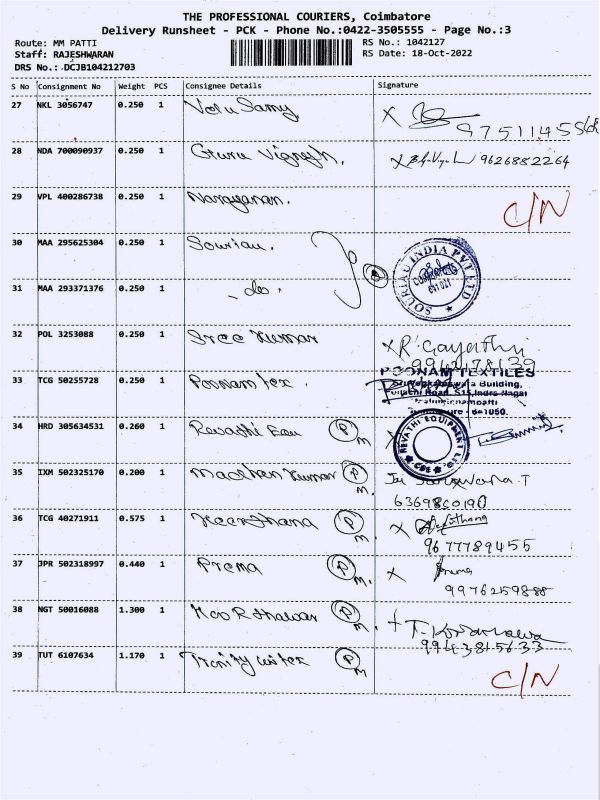 THE PROFESSIONAL COURIERS, Coimbatore
Delivery Runsheet - PCK - Phone No.:0422-3505555 - Page No.:3
Route: MM PATTI RS No.: 1042127
Staff: RAJESHWARAN RS Date: 18-Oct-2022
DRS No.: DCJB104212703
S No Consignment No Weight PCS Consignee Details Signature
27 NKL 3056747 0.250 1 Velu Samy X
9751145568
28 NDA 700090937 0.250 1 Guru Vignesh. X 9626882264
29 VPL 400286738 0.250 1 Narayanan. C/N
30 MAA 295625304 0.250 1 Souriau.
SOURIAU INDIA PVT LTD
31 MAA 293371376 0.250 1 - do.
32 POL 3253088 0.250 1 Sree Kumar X R. Gayathri
33 TCG 50255728 0.250 1 Poonam tex. POONAM TEXTILES
Building,
Road, S15, Indra Nagar
34 HRD 305634531 0.260 1 Revathi Equ P M. X REVATHI EQUIPMENT LTD. CBE
35 IXM 502325170 0.200 1 Madhan Kumar P M. Jai Saravana T
6369800190
36 TCG 40271911 0.575 1 Keerthana P M. X Keerthana
9677789455
37 JPR 502318997 0.440 1 Prema P M. X Prema
9976259888
38 NGT 50016088 1.300 1 P M.
9943815633
39 TUT 6107634 1.170 1 P M C/N